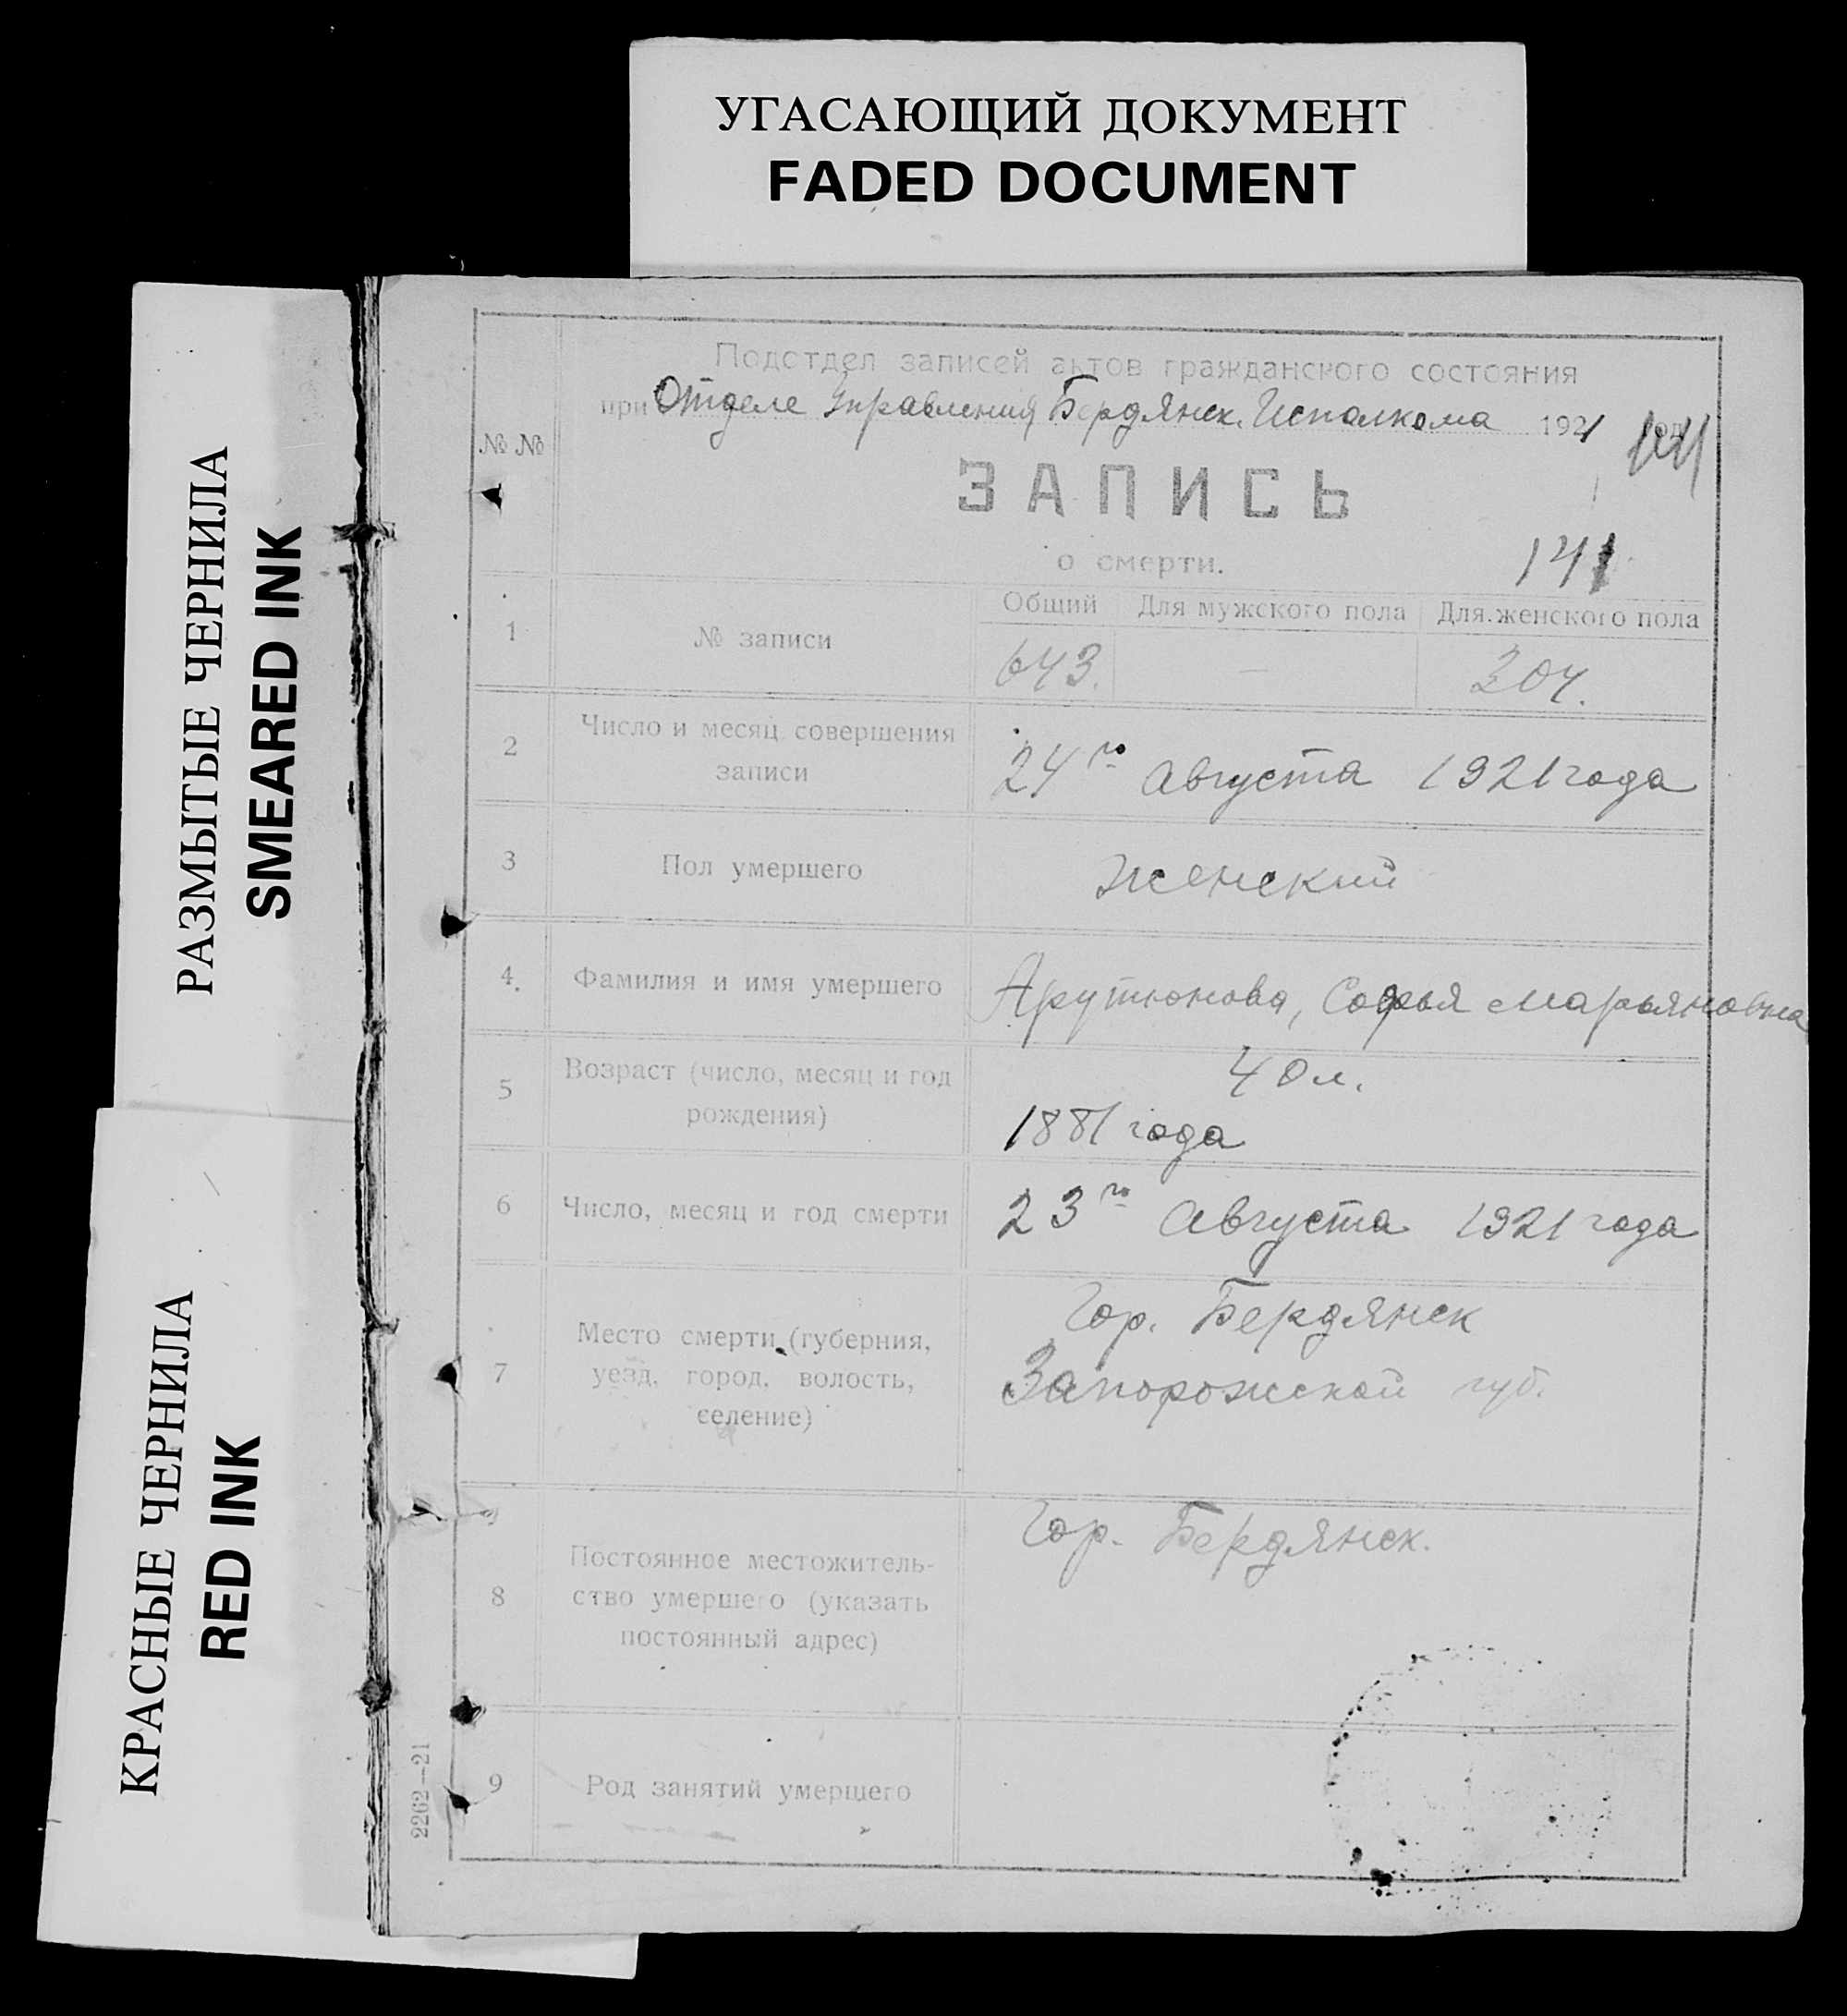 УГАСАЮЩИЙ ДОКУМЕНТ
FADED DOCUMENT
РАЗМЫТЫЕ ЧЕРНИЛА
SMEARED INK
КРАСНЫЕ ЧЕРНИЛА
RED INK
Подотдел записей актов гражданского состояния
при Отделе Управления Бердянск. Исполкома 1921 год
№ №
ЗАПИСЬ
о смерти.
141
1
№ записи
Общий
Для мужского пола
Для женского пола
643.
—
204.
2
Число и месяц совершения
записи
24го Августа 1921 года
3
Пол умершего
Женский
4.
Фамилия и имя умершего
Арутюнова, Софья Марьяновна
5
Возраст (число, месяц и год
рождения)
40 л.
1881 года
6
Число, месяц и год смерти
23го Августа 1921 года
7
Место смерти (губерния,
уезд, город, волость,
селение)
Гор. Бердянск
Запорожской губ.
8
Постоянное местожитель-
ство умершего (указать
постоянный адрес)
Гор. Бердянск.
9
Род занятий умершего
2262—21